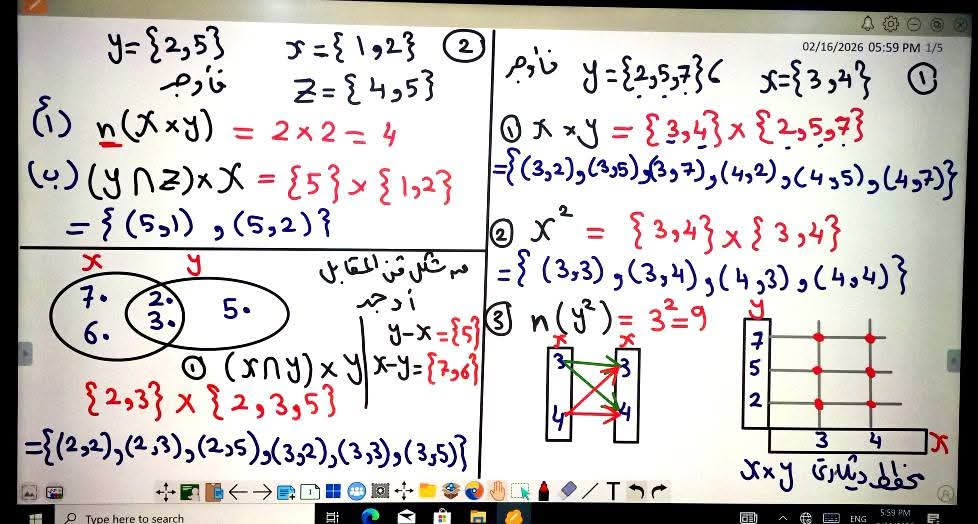 02/16/2026 05:59 PM 1/5
① x={3,4} y={2,5,7}6 فأوجد
① x × y = {3,4} × {2,5,7}
={(3,2),(3,5),(3,7),(4,2),(4,5),(4,7)}
② x² = {3,4} × {3,4}
={(3,3),(3,4),(4,3),(4,4)}
③ n(y²) = 3²=9
x x
3 3
4 4
y
7
5
2
3 4 x
مخطط بياني x×y
② x={1,2} y={2,5}
z={4,5} فأوجد
(أ) n(x×y) = 2×2=4
(ب) (y∩z)×x = {5}×{1,2}
={(5,1),(5,2)}
من شكل فن المقابل
أوجد
x y
7. 2. 5.
6. 3.
y-x={5}
x-y={7,6}
① (x∩y)×y
{2,3}×{2,3,5}
={(2,2),(2,3),(2,5),(3,2),(3,3),(3,5)}
Type here to search
ENG
5:59 PM